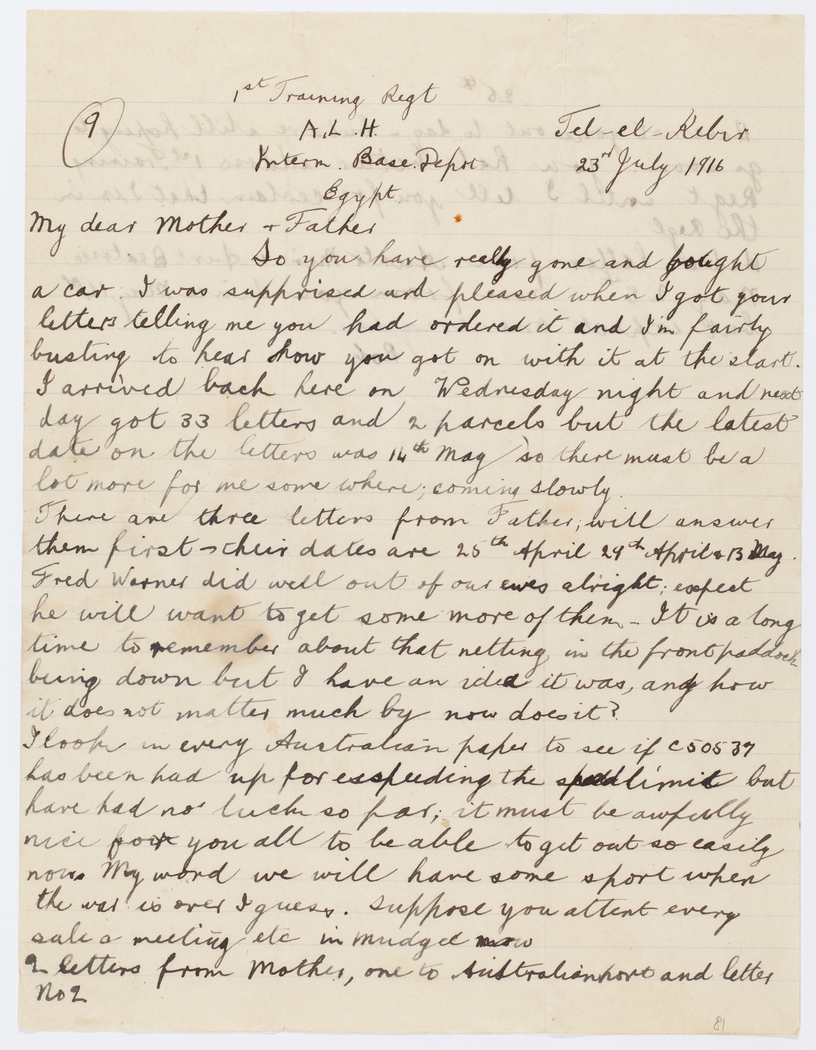 1st Training Regt
(9) A.L.H. Tel-el-Kebir
Interm. Base. Depot 23rd July 1916
Egypt
My dear Mother + Father
So you have really gone and bought
a car. I was supprised and pleased when I got your
letters telling me you had ordered it and I'm fairly
busting to hear how you got on with it at the start.
I arrived back here on Wednesday night and next
day got 33 letters and 2 parcels but the latest
date on the letters was 14th May so there must be a
lot more for me some where; coming slowly.
There are three letters from Father; will answer
them first - their dates are 25th April 29th April & 13 May.
Fred Warner did well out of our ewes alright; expect
he will want to get some more of them - It is a long
time to remember about that netting in the front paddock
being down but I have an idea it was, and how
it does not matter much by now does it?
I look in every Australian paper to see if C50537
has been had up for exspeeding the speed limit but
have had no luck so far; it must be awfully
nice for you all to be able to get out so easily
now. My word we will have some sport when
the war is over I guess. Suppose you attent every
sale a meeting etc in Mudgee now
2 letters from Mother, one to Australian port and letter
No 2
81